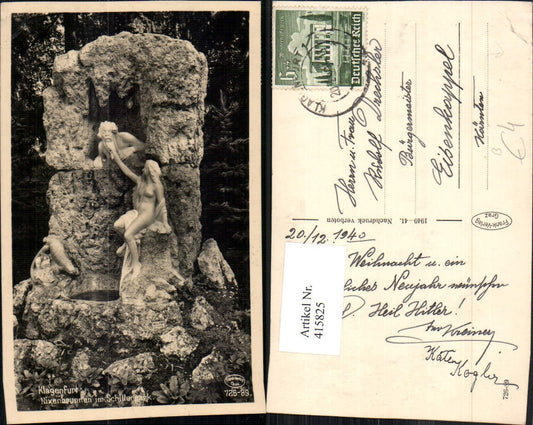 Klagenfurt
Nixenbrunnen im Schillerpark
726-89
6
Deutsches Reich
KLAG
Herrn u. Frau
Rudolf Drechsler
Bürgermeister
Eisenkappel
Kärnten
€4
1940-41. Nachdruck verboten
Frank-Verlag
Graz
20/12. 1940
Weihnacht u. ein
Neujahr wünschen
Heil Hitler!
Käte
Kogler
726-89
Artikel Nr.
415825